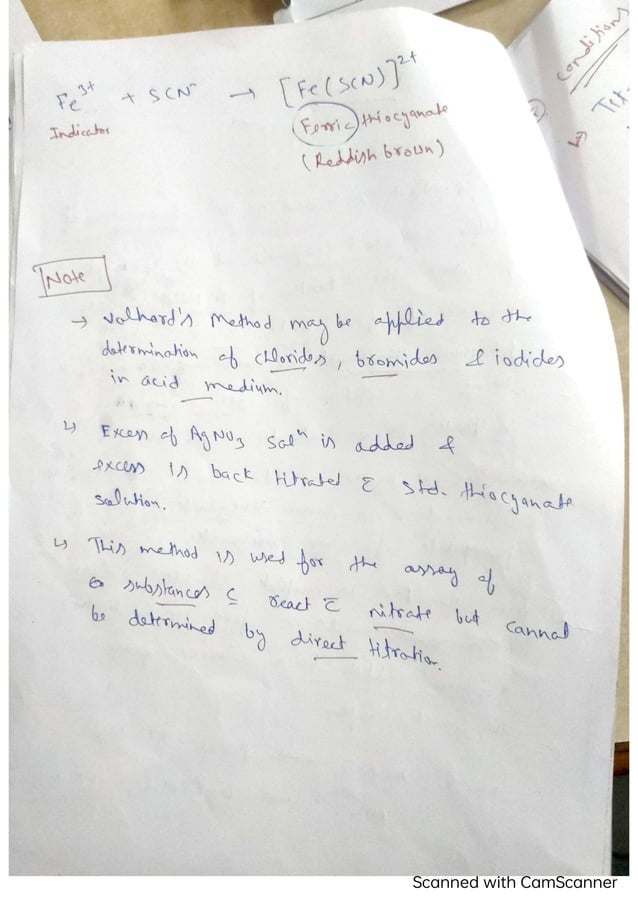 Fe³⁺ + SCN⁻ → [Fe(SCN)]²⁺
Indicator
Ferric thiocyanate
(Reddish brown)
Note
→ Volhard's Method may be applied to the
determination of chlorides, bromides & iodides
in acid medium.
↳ Excess of AgNO₃ solⁿ is added &
excess is back titrated c̄ std. thiocyanate
solution.
↳ This method is used for the assay of
substances c react c̄ nitrate but cannot
be determined by direct titration.
Conditions
Scanned with CamScanner